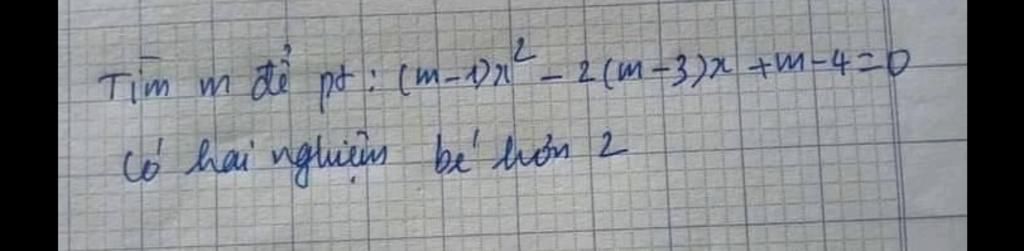 Tìm m để pt : (m-1)x² - 2(m-3)x + m-4=0
Có hai nghiệm bé hơn 2